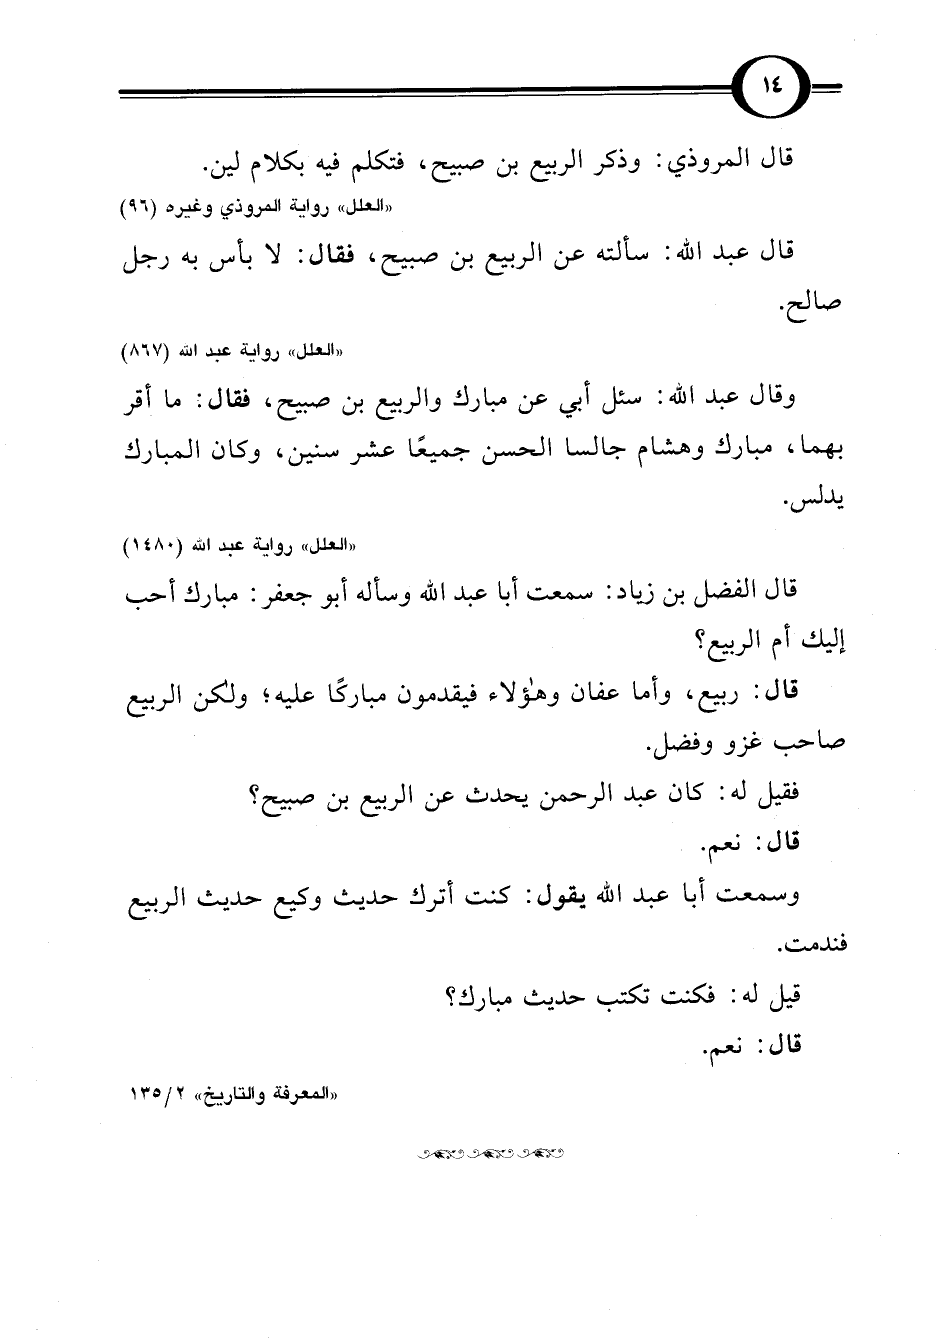 ١٤
قال المروذي: وذكر الربيع بن صبيح، فتكلم فيه بكلام لين.
«العلل» رواية المروذي وغيره (٩٦)
قال عبد الله: سألته عن الربيع بن صبيح، فقال: لا بأس به رجل
صالح.
«العلل» رواية عبد الله (٨٦٧)
وقال عبد الله: سئل أبي عن مبارك والربيع بن صبيح، فقال: ما أقر
بهما، مبارك وهشام جالسا الحسن جميعًا عشر سنين، وكان المبارك
يدلس.
«العلل» رواية عبد الله (١٤٨٠)
قال الفضل بن زياد: سمعت أبا عبد الله وسأله أبو جعفر: مبارك أحب
إليك أم الربيع؟
قال: ربيع، وأما عفان وهؤلاء فيقدمون مباركًا عليه؛ ولكن الربيع
صاحب غزو وفضل.
فقيل له: كان عبد الرحمن يحدث عن الربيع بن صبيح؟
قال: نعم.
وسمعت أبا عبد الله يقول: كنت أترك حديث وكيع حديث الربيع
فندمت.
قيل له: فكنت تكتب حديث مبارك؟
قال: نعم.
«المعرفة والتاريخ» ٢/ ١٣٥